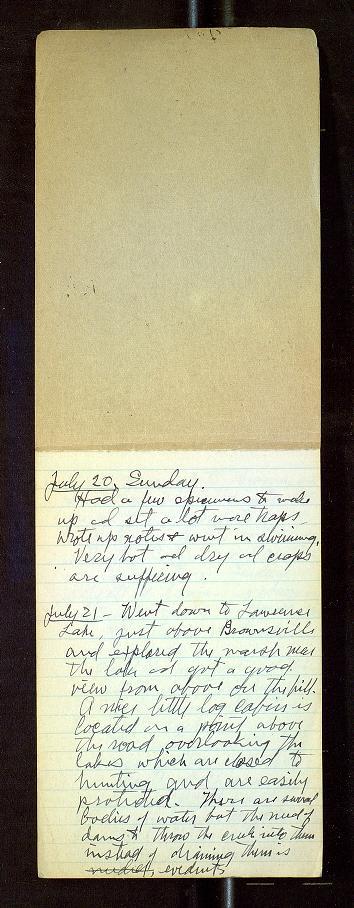 July 20, Sunday.
Had a few specimens to make
up ad set a lot more traps.
Wrote up notes & went in swimming.
Very hot ad dry ad crops
are suffering.
July 21 - Went down to Lawrence
Lake, just above Brownsville
and explored the marsh near
the lake ad got a good
view from above on the hill.
A nice little log cabin is
located on a point above
the road overlooking the
lakes which are closed to
hunting and are easily
protected. There are several
bodies of water but the need of
dams to throw the creek into them
instead of draining them is
evident.